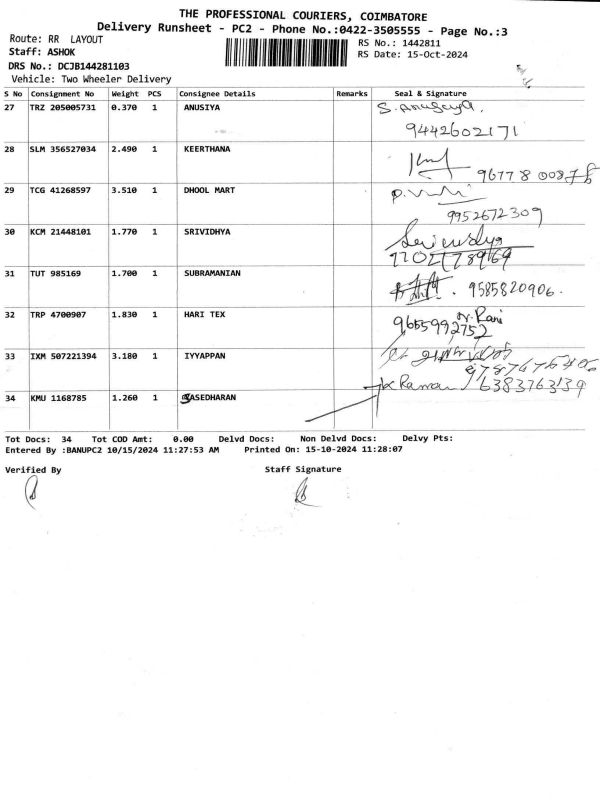 THE PROFESSIONAL COURIERS, COIMBATORE
Delivery Runsheet - PC2 - Phone No.:0422-3505555 - Page No.:3
Route: RR LAYOUT
RS No.: 1442811
Staff: ASHOK
RS Date: 15-Oct-2024
DRS No.: DCJB144281103
Vehicle: Two Wheeler Delivery
S No Consignment No Weight PCS Consignee Details Remarks Seal & Signature
27 TRZ 205005731 0.370 1 ANUSIYA S. Anusuya,
9442602171
28 SLM 356527034 2.490 1 KEERTHANA
96778 008
29 TCG 41268597 3.510 1 DHOOL MART
9952672309
30 KCM 21448101 1.770 1 SRIVIDHYA
31 TUT 985169 1.700 1 SUBRAMANIAN 9585820906.
32 TRP 4700907 1.830 1 HARI TEX N. Rani
9655992752
33 IXM 507221394 3.180 1 IYYAPPAN
34 KMU 1168785 1.260 1 SASEDHARAN Raman 6383763139
Tot Docs: 34 Tot COD Amt: 0.00 Delvd Docs: Non Delvd Docs: Delvy Pts:
Entered By :BANUPC2 10/15/2024 11:27:53 AM Printed On: 15-10-2024 11:28:07
Verified By Staff Signature